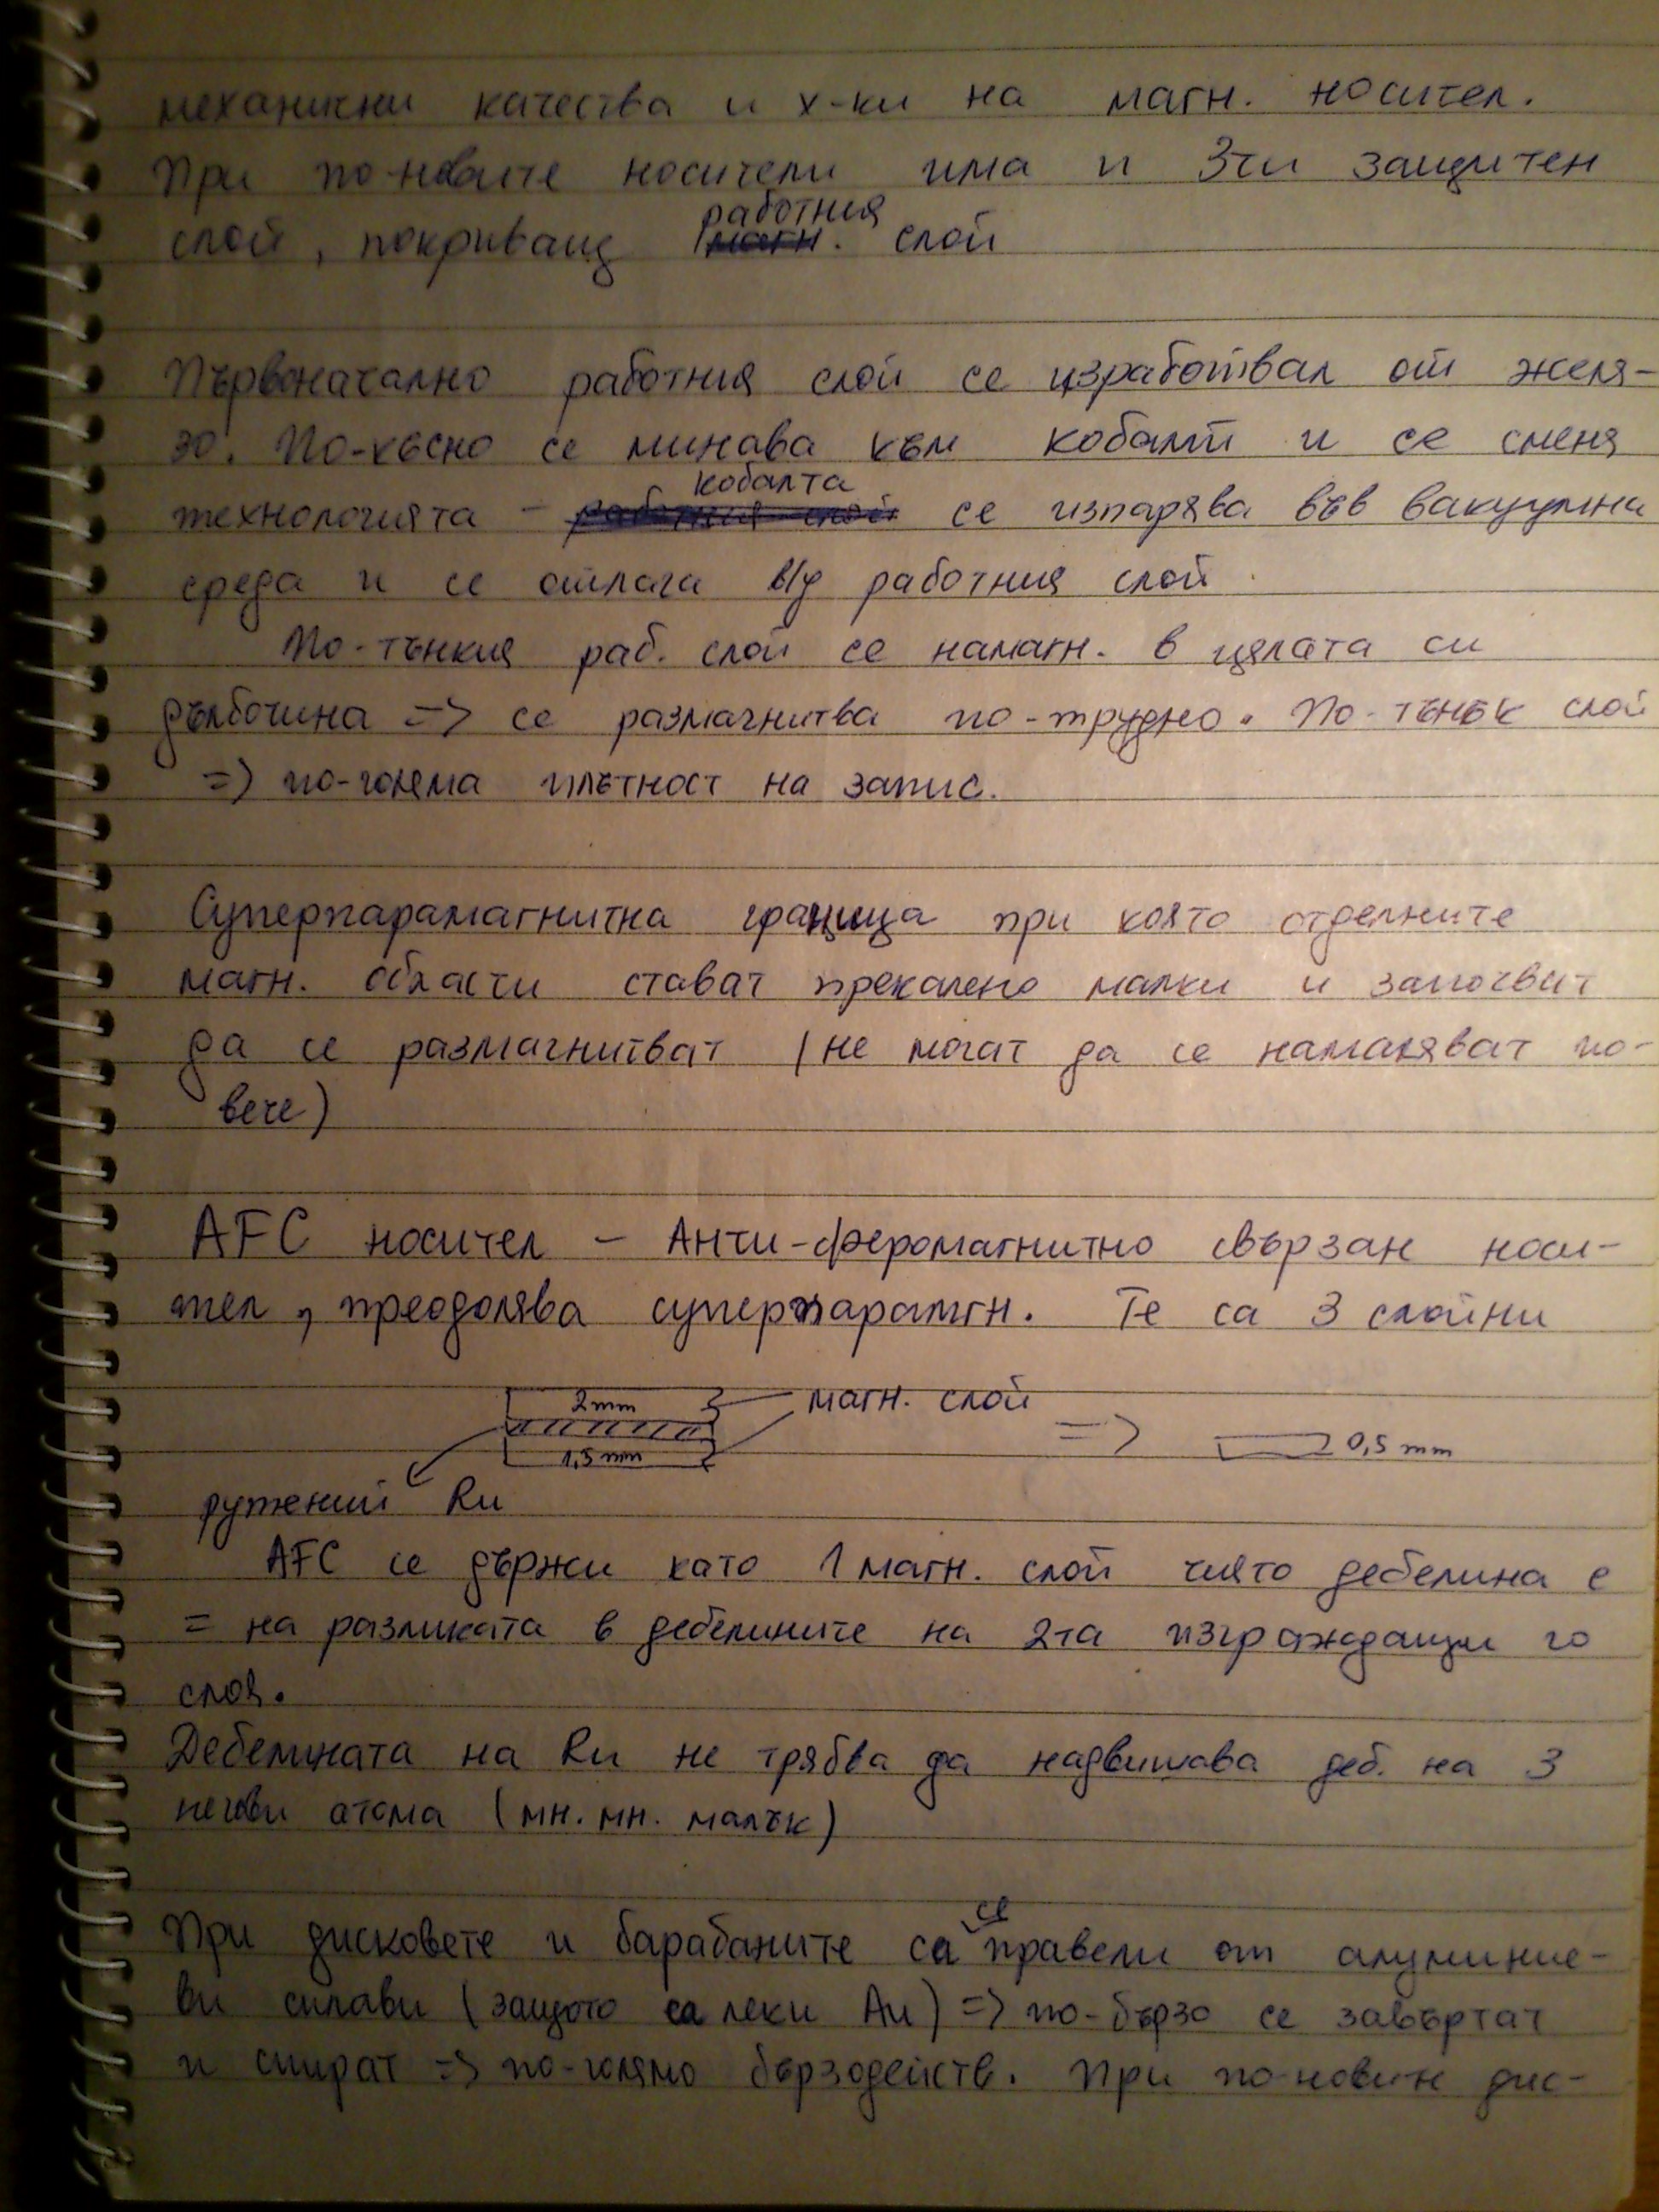 механични качества и х-ки на магн. носител.
При по-новите носители има и 3ти защитен
слой, покриващ работния слой
Първоначално работния слой се изработвал от желя-
зо. По-късно се минава към кобалт и се сменя
технологията - кобалта се изпарява във вакуумна
среда и се отлага в/у работния слой.
По-тънкия раб. слой се намагн. в цялата си
дълбочина => се размагнитва по-трудно. По-тънък слой
=> по-голяма плътност на запис.
Суперпарамагнитна граница при която отделните
магн. области стават прекалено малки и започват
да се размагнитват (не могат да се намаляват по-
вече)
AFC носител - Анти-феромагнитно свързан носи-
тел, преодолява суперпарамгн. Те са 3 слойни
2mm магн. слой
1,5 mm => 0,5 mm
рутений Ru
AFC се държи като 1 магн. слой чиято дебелина е
= на разликата в дебелините на 2та изграждащи го
слоя.
Дебелината на Ru не трябва да надвишава деб. на 3
негови атома (мн. мн. малък)
При дисковете и барабаните са се правели от алуминие-
ви сплави (защото са леки Au) => по-бързо се завъртат
и спират => по-голямо бързодейств. При по-новите дис-